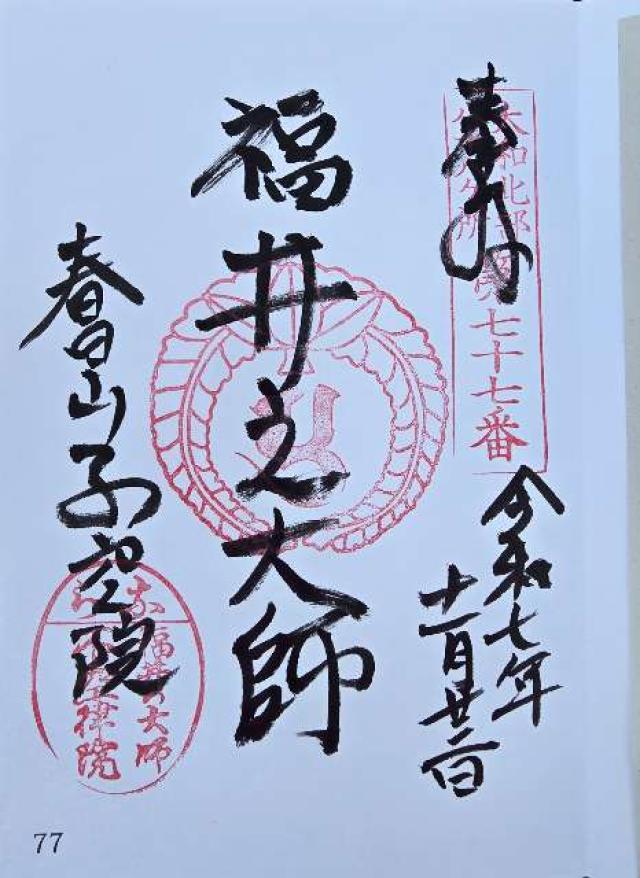 奉拝
大和北部
八十八ヶ所
第七十七番
令和七年
十一月廿二日
福井之大師
春日山不空院
なら
福井大師
不空律院
77